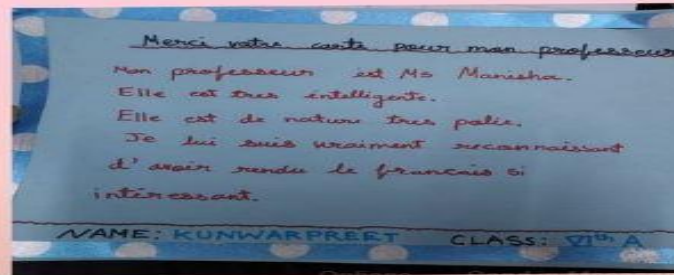 Merci votre carte pour mon professeur
Mon professeur est Ms Manisha.
Elle est tres intelligente.
Elle est de nature tres polie.
Je lui suis vraiment reconnaissant
d'avoir rendu le francais si
intéressant.
NAME: KUNWARPREET CLASS: VIth A